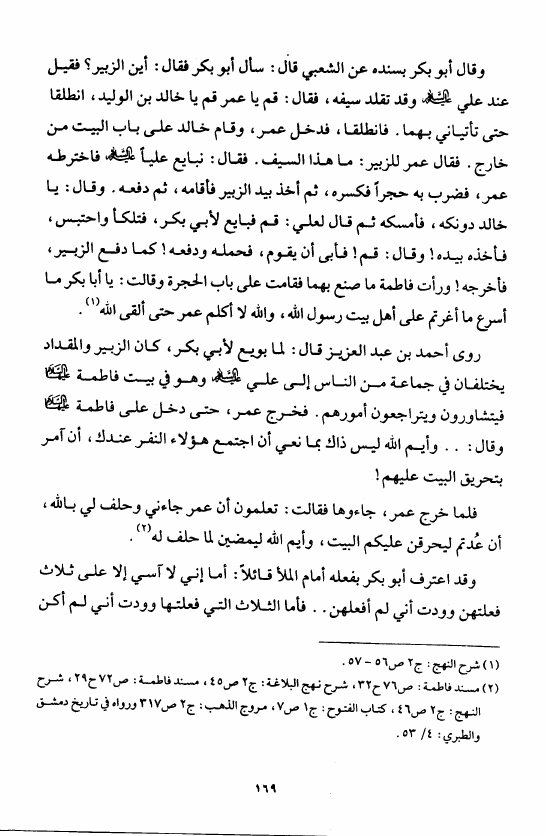 وقال أبو بكر بسنده عن الشعبي قال: سأل أبو بكر فقال: أين الزبير؟ فقيل
عند علي عليه السلام وقد تقلد سيفه، فقال: قم يا عمر قم يا خالد بن الوليد، انطلقا
حتى تأتياني بهما. فانطلقا، فدخل عمر، وقام خالد على باب البيت من
خارج. فقال عمر للزبير: ما هذا السيف. فقال: نبايع علياً عليه السلام، فاخترطه
عمر، فضرب به حجراً فكسره، ثم أخذ بيد الزبير فأقامه، ثم دفعه. وقال: يا
خالد دونكه، فأمسكه ثم قال لعلي: قم فبايع لأبي بكر، فتلكأ واحتبس،
فأخذه بيده! وقال: قم! فأبى أن يقوم، فحمله ودفعه! كما دفع الزبير،
فأخرجه! ورأت فاطمة ما صنع بهما فقامت على باب الحجرة وقالت: يا أبا بكر ما
أسرع ما أغرتم على أهل بيت رسول الله، والله لا أكلم عمر حتى ألقى الله(١).
روى أحمد بن عبد العزيز قال: لما بويع لأبي بكر، كان الزبير والمقداد
يختلفان في جماعة من الناس إلى علي عليه السلام وهو في بيت فاطمة عليها السلام
فيتشاورون ويتراجعون أمورهم. فخرج عمر، حتى دخل على فاطمة عليها السلام
وقال: .. وأيم الله ليس ذاك بما نعي أن اجتمع هؤلاء النفر عندك، أن آمر
بتحريق البيت عليهم!
فلما خرج عمر، جاءوها فقالت: تعلمون أن عمر جاءني وحلف لي بالله،
أن عُدتم ليحرقن عليكم البيت، وأيم الله ليمضين لما حلف له(٢).
وقد اعترف أبو بكر بفعله أمام الملأ قائلاً: أما إني لا آسي إلا على ثلاث
فعلتهن وودت أني لم أفعلهن.. فأما الثلاث التي فعلتها وودت أني لم أكن
(١) شرح النهج: ج٢ ص٥٦ - ٥٧.
(٢) مسند فاطمة: ص٧٦ ح٣٢، شرح نهج البلاغة: ج٢ ص٤٥، مسند فاطمة: ص٧٢ ح٢٩، شرح
النهج: ج٢ ص٤٦، كتاب الفتوح: ج١ ص٧، مروج الذهب: ج٢ ص٣١٧ ورواه في تاريخ دمشق
والطبري: ٤/ ٥٣.
١٦٩